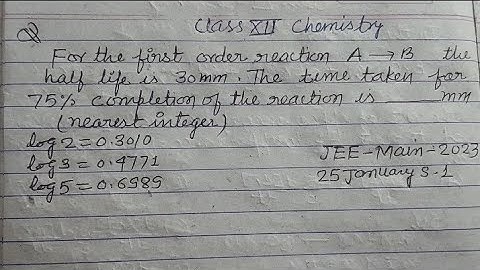 Q
Class XII Chemistry
For the first order reaction A → B the
half life is 30mm. The time taken for
75% completion of the reaction is ____ mm
(nearest integer)
log2 = 0.3010
log3 = 0.4771
log5 = 0.6989
JEE-Main-2023
25 January S-1